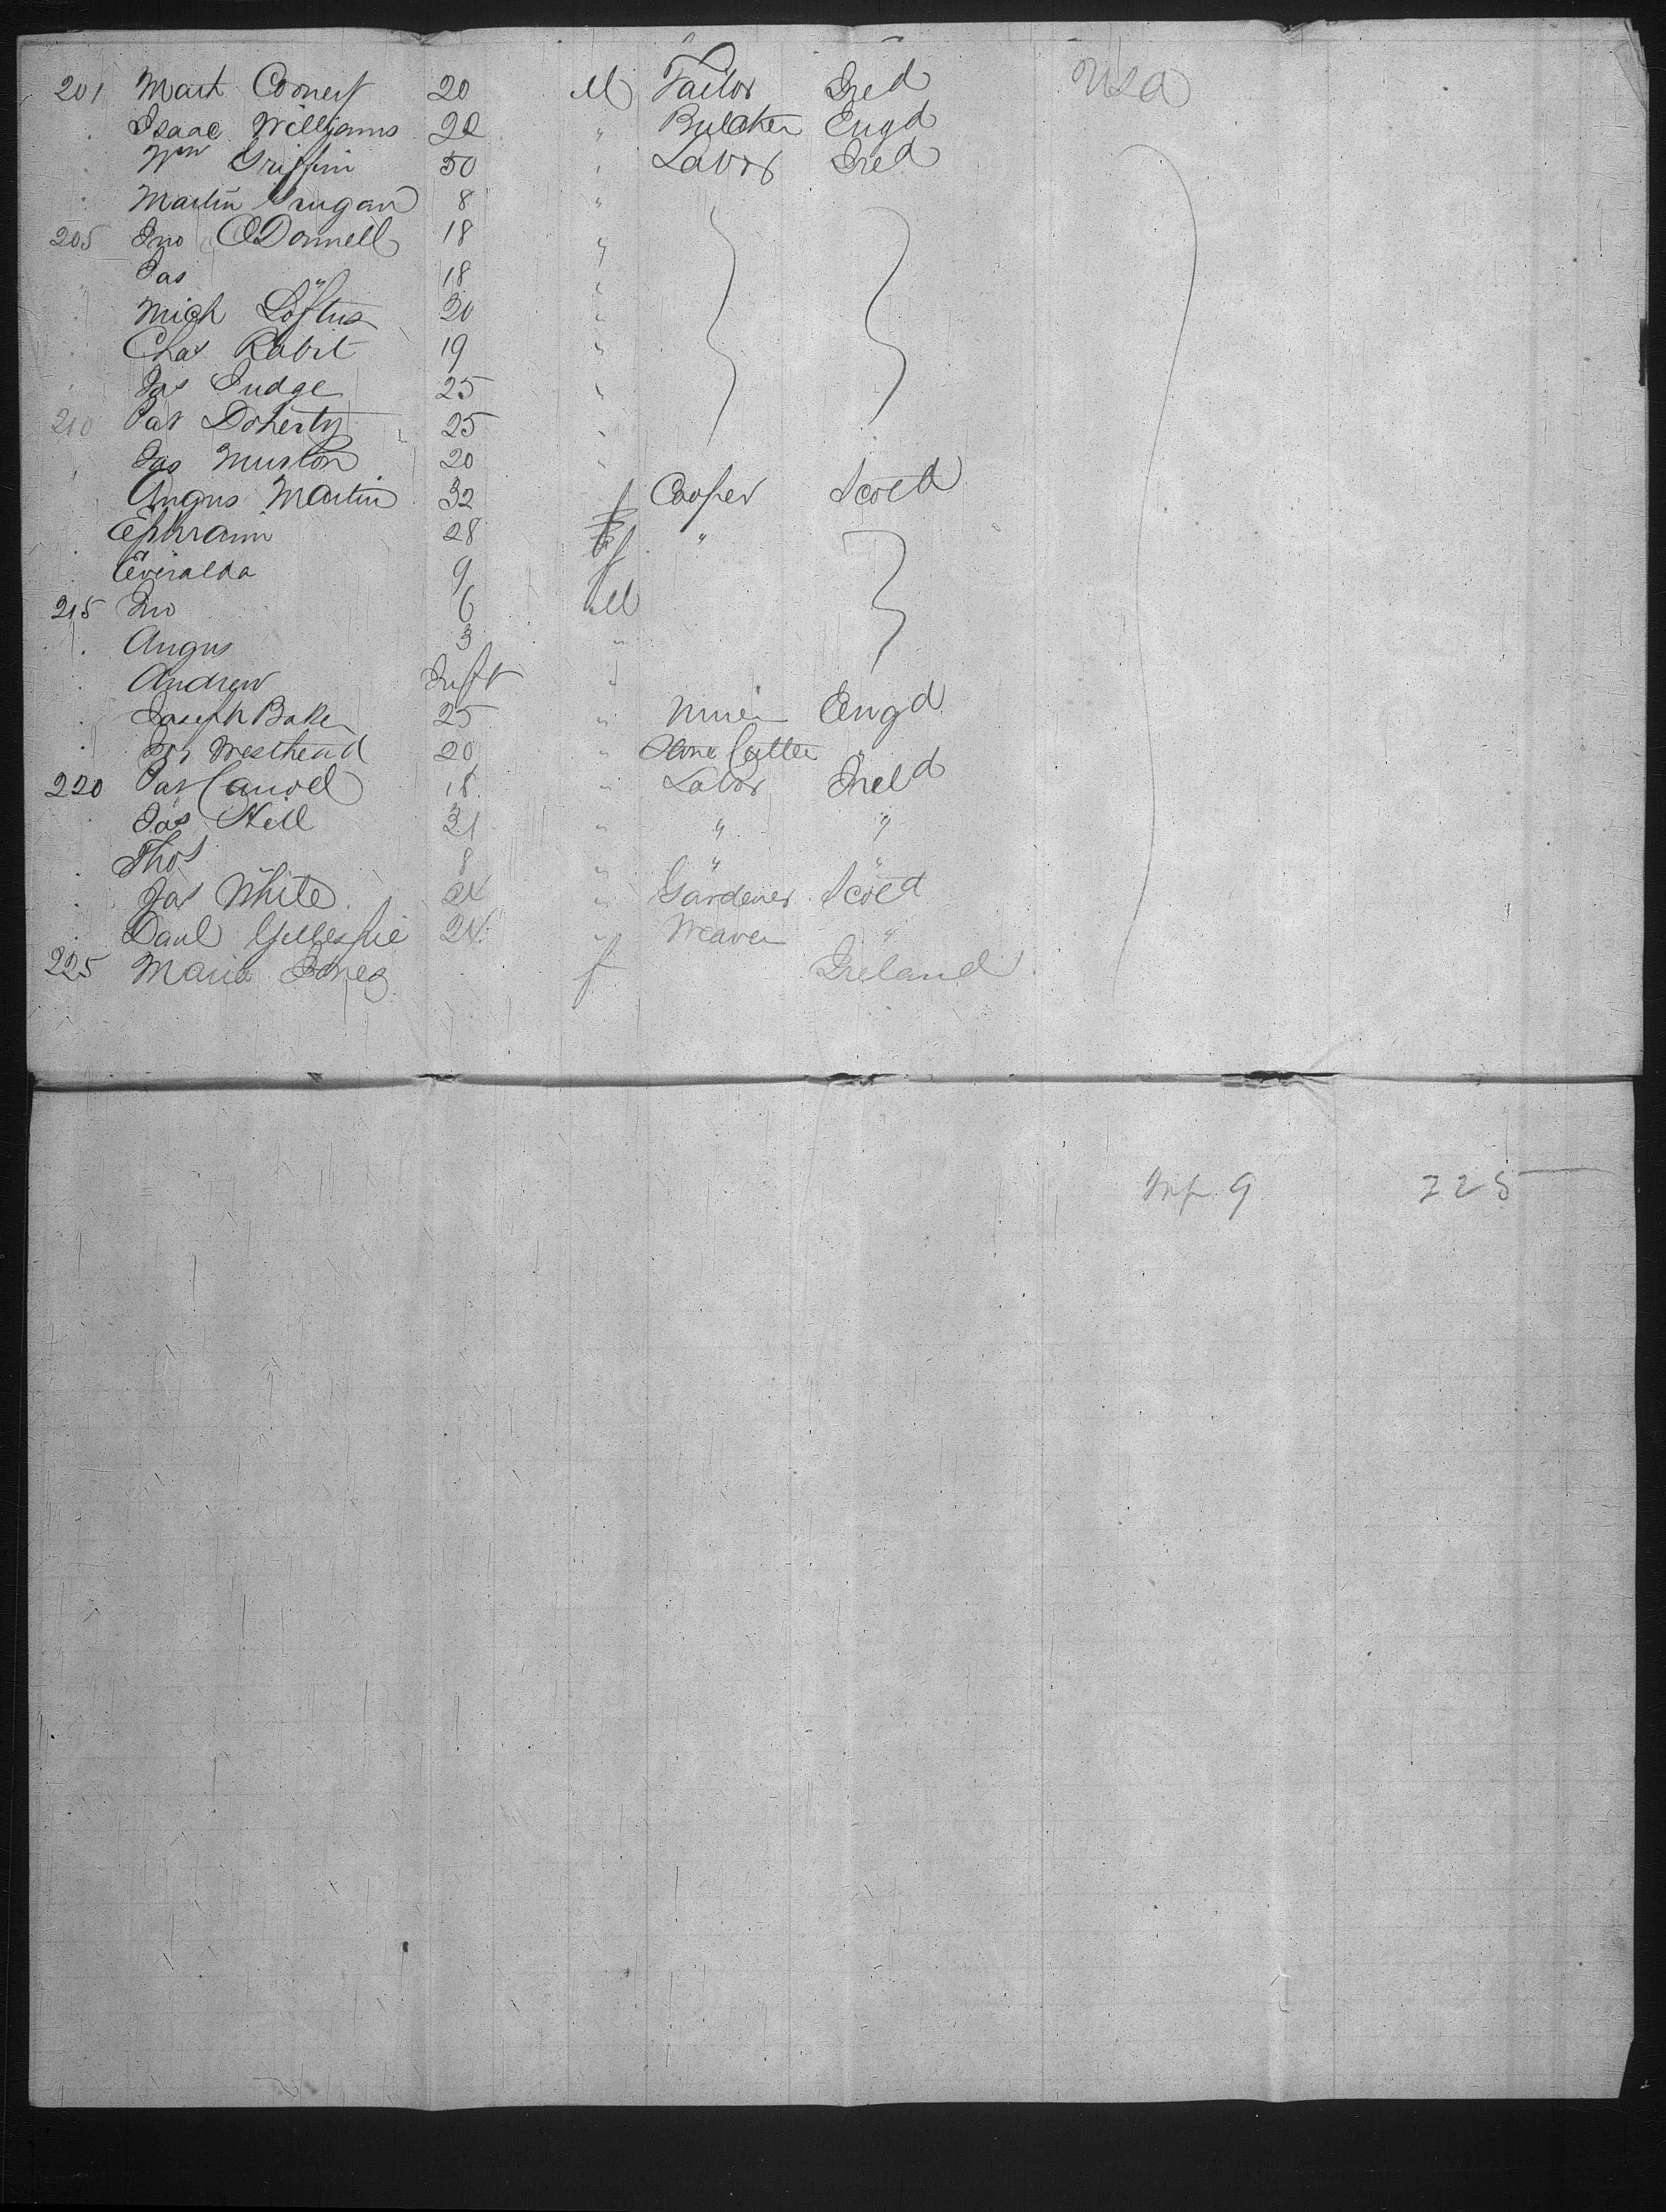 201 Mart Conerf 20 M Tailor Ireld USA
Isaac Williams 22 " Butcher Engd
Wm Griffin 50 " Labor Ireld
Martin 8 "
205 Jno O'Donnell 18 "
Jas " 18 "
Mich Loftus 20 "
Chas Rabit 19 "
Jas Judge 25 "
210 Pat Doherty 25 "
Jas 20 "
Angus Martin 32 Cooper Scotd
Ephraim " 28 f "
Everalda 9 f
215 Jno 6 M
Angus 3 "
Andrew Inft "
Joseph Baker 25 " Miner Engd
Jos Westhead 20 " Stone Cutter "
220 Pat Carrol 18 " Labor Ireld
Jas Neil 31 " " "
Thos " 8 " " "
Jas White 24 " Gardener Scotd
Danl Gillespie 24 " Weaver "
225 Maria Jones f Ireland
Inf 9 225